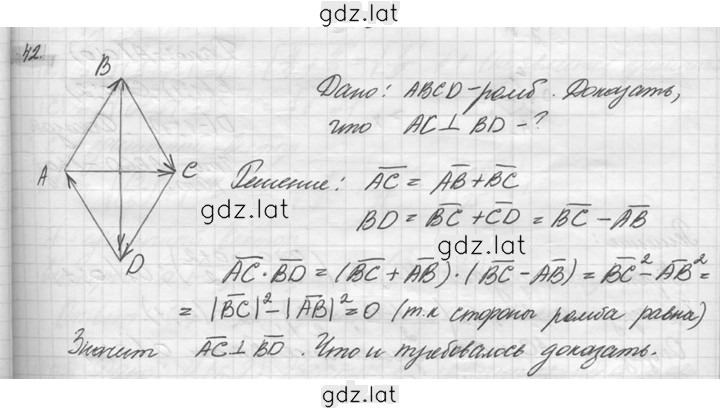 gdz.lat
42.
B
A
C
D
Дано: ABCD – ромб. Доказать,
что AC ⊥ BD – ?
Решение: \overline{AC} = \overline{AB} + \overline{BC}
gdz.lat
BD = \overline{BC} + \overline{CD} = \overline{BC} – \overline{AB}
gdz.lat
\overline{AC} · \overline{BD} = (\overline{BC} + \overline{AB}) · (\overline{BC} – \overline{AB}) = \overline{BC}^2 – \overline{AB}^2 =
= |\overline{BC}|^2 – |\overline{AB}|^2 = 0 (т.к стороны ромба равны)
Значит \overline{AC} ⊥ \overline{BD}. Что и требовалось доказать.
gdz.lat